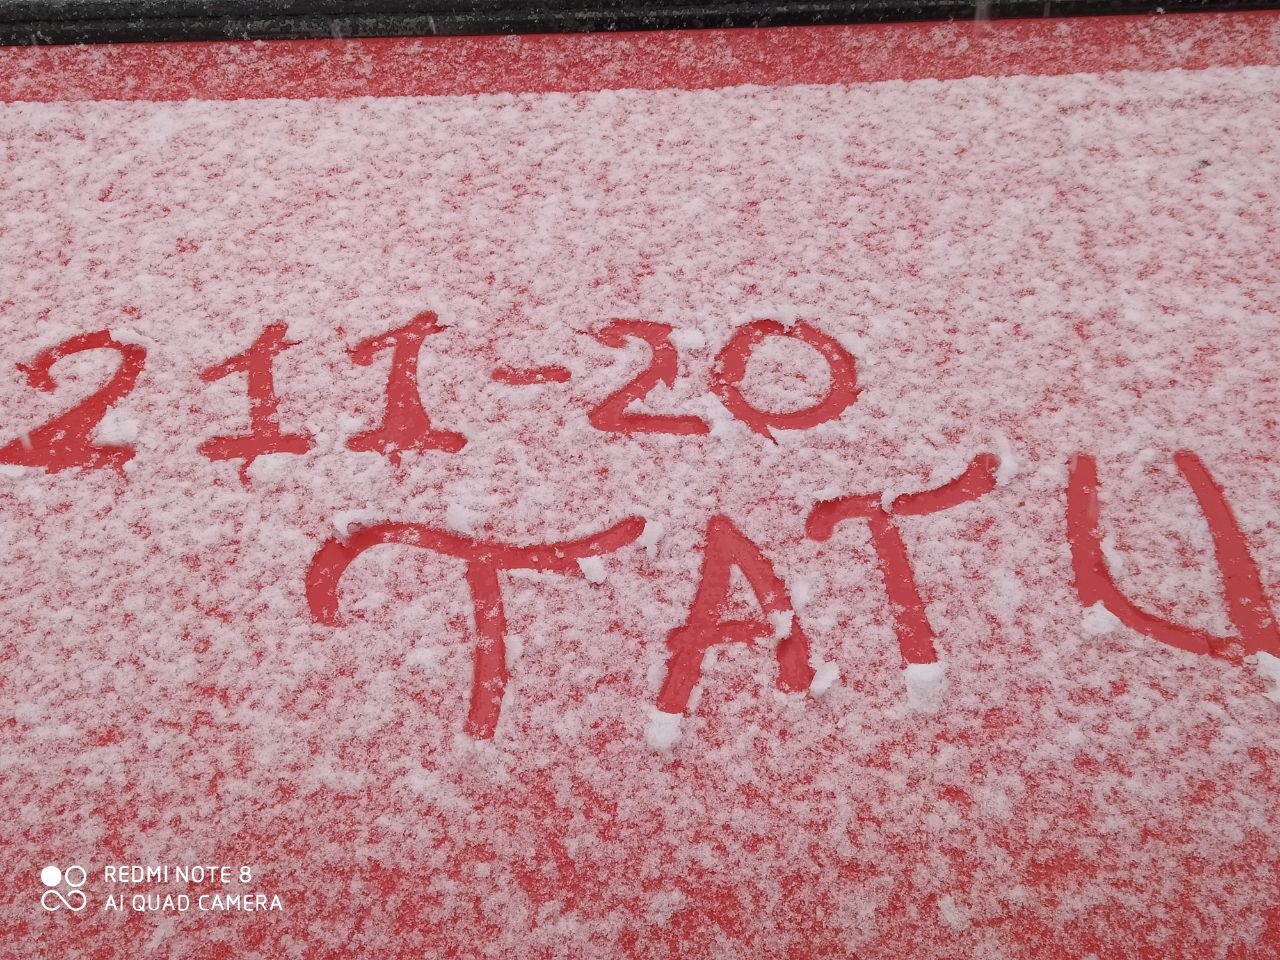 211-20
TATU
REDMI NOTE 8
AI QUAD CAMERA